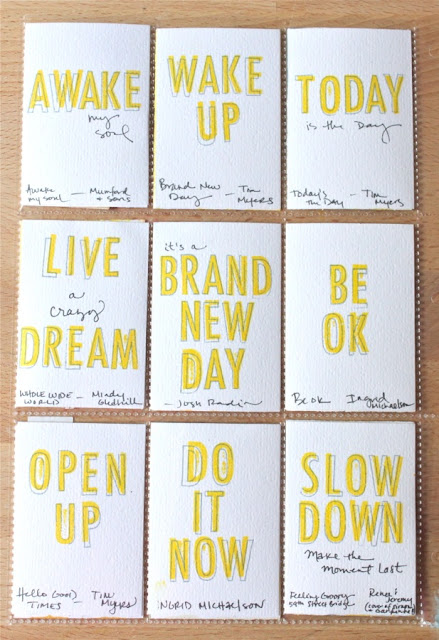 AWAKE
my
soul
Awake
my soul — Mumford
+ Sons
WAKE
UP
Brand New
Day — Tim
Myers
TODAY
is the Day
Today's
the Day — Tim
Myers
LIVE
a
crazy
DREAM
WHOLE WIDE
WORLD — Mindy
Gledhill
it's a
BRAND
NEW
DAY
— Josh Radin
BE
OK
Be OK Ingrid
Michaelson
OPEN
UP
Hello Good
TIMES — Tim
Myers
DO
IT
NOW
INGRID MICHAELSON
SLOW
DOWN
Make the
Moment Last
Feeling Groovy
59th Street Bridge
Renee &
Jeremy